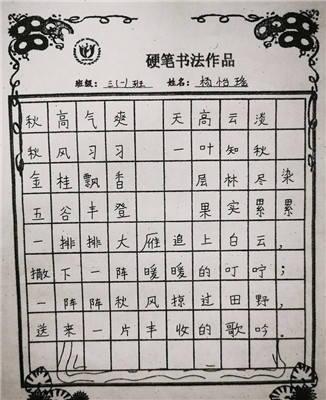 硬笔书法作品
班级：三(一)班 姓名：杨怡瑶
秋高气爽 天高云淡
秋风习习 一叶知秋
金桂飘香 层林尽染
五谷丰登 果实累累
一排排大雁追上白云，
撒下一阵暖暖的叮咛；
一阵阵秋风掠过田野，
送来一片丰收的歌吟。